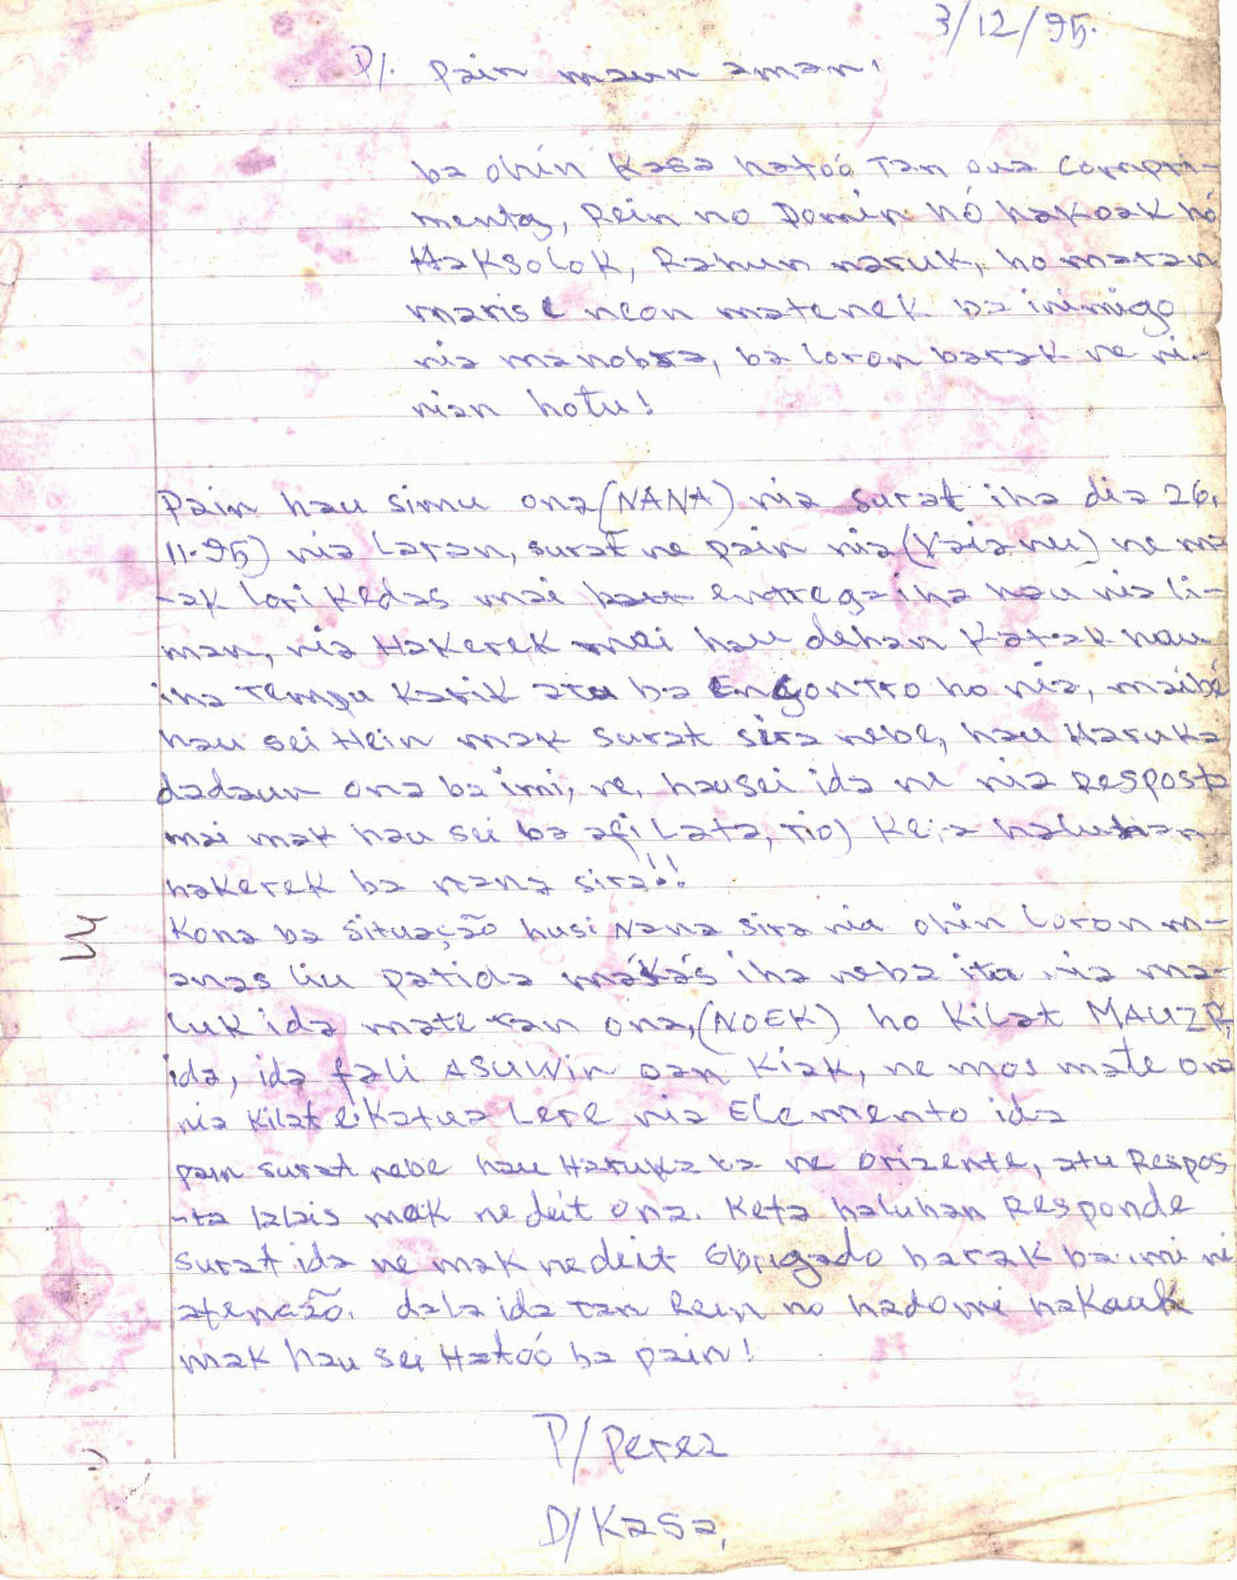 3/12/95.
P/. Pain maun aman!
ba ohin Kasa hatóó Tan ona Compri-
mentos, Rein no Domin hó hakoak hó
Haksolok, Rahun naruk, ho matan
maris e neon matenek ba inimigo
nia manobra, ba loron barak ne ni-
nian hotu!
Pain hau simu ona (NANA) nia surat iha dia 26.
11.95) nia laran, surat ne pain nia (Vaianu) ne m
-ak lori Kedas mai entrega iha hau nia li-
man, nia Hakerek mai hau dehan Katak hau
iha Tempu Karik atu ba Encontro ho nia, maibé
hau sei Hein mak surat sira nebe, hau Haruka
dadaun ona ba imi, ne, hausei ida ne nia Resposta
mai mak hau sei ba afi Lata, Tio)
hakerek ba nana sira!!
Kona ba Situação husi Nana sira nia ohin loron m-
anas liu patida mákás iha neba ita nia ma-
luk ida mate tan ona, (NOEK) ho Kilat MAUZR,
ida, ida fali ASUWin oan Kiak, ne mos mate ona
nia Kilat Katua Lere nia Elemento ida
pain surat nebe hau Haruka ba ne Orizente, atu Respos
-ta lalais mak ne deit ona. Keta haluhan Responde
surat ida ne mak ne deit Obrigado barak ba imi ni
atençaõ. dala ida Tan Rein no hadomi hakauk
mak hau sei Hatóó ba pain!
P/Perez
D/Kasa,